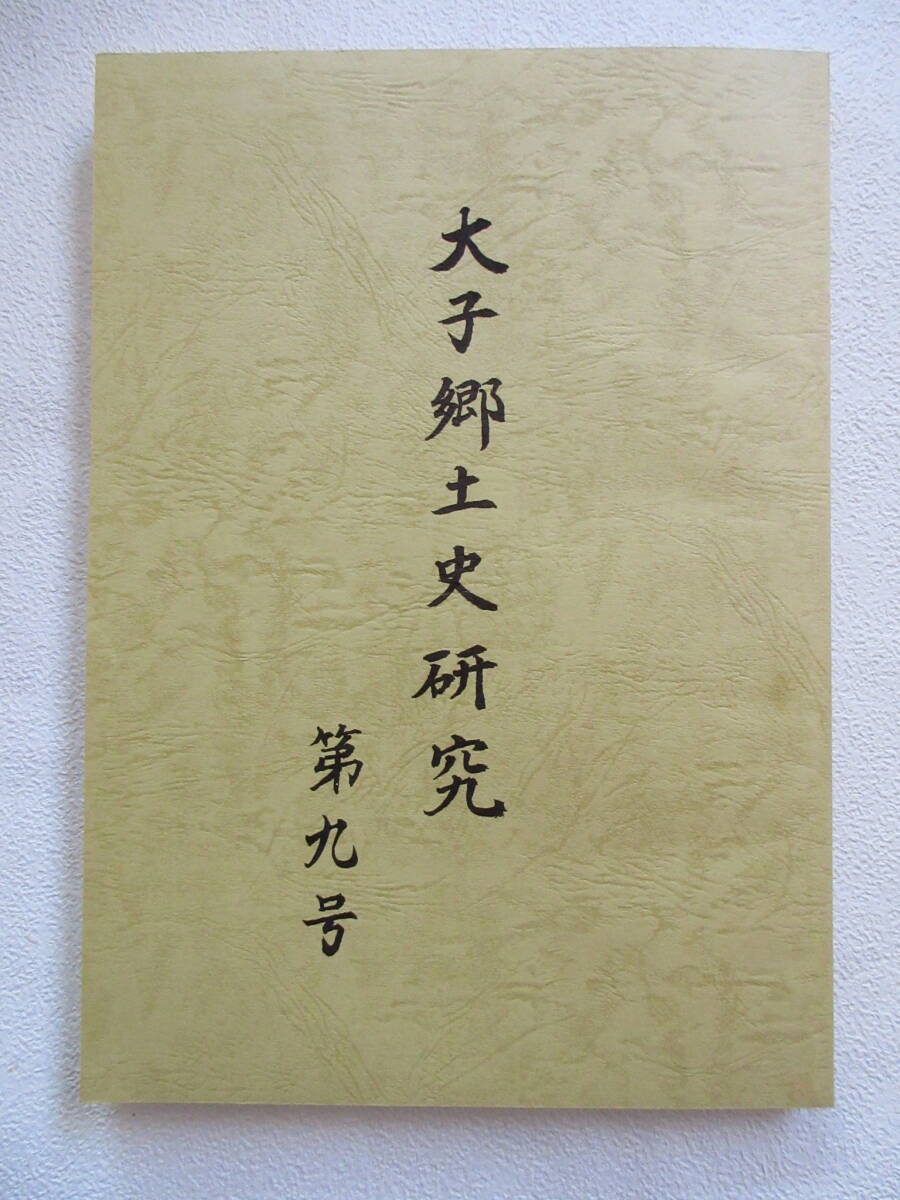 大子郷土史研究
第九号